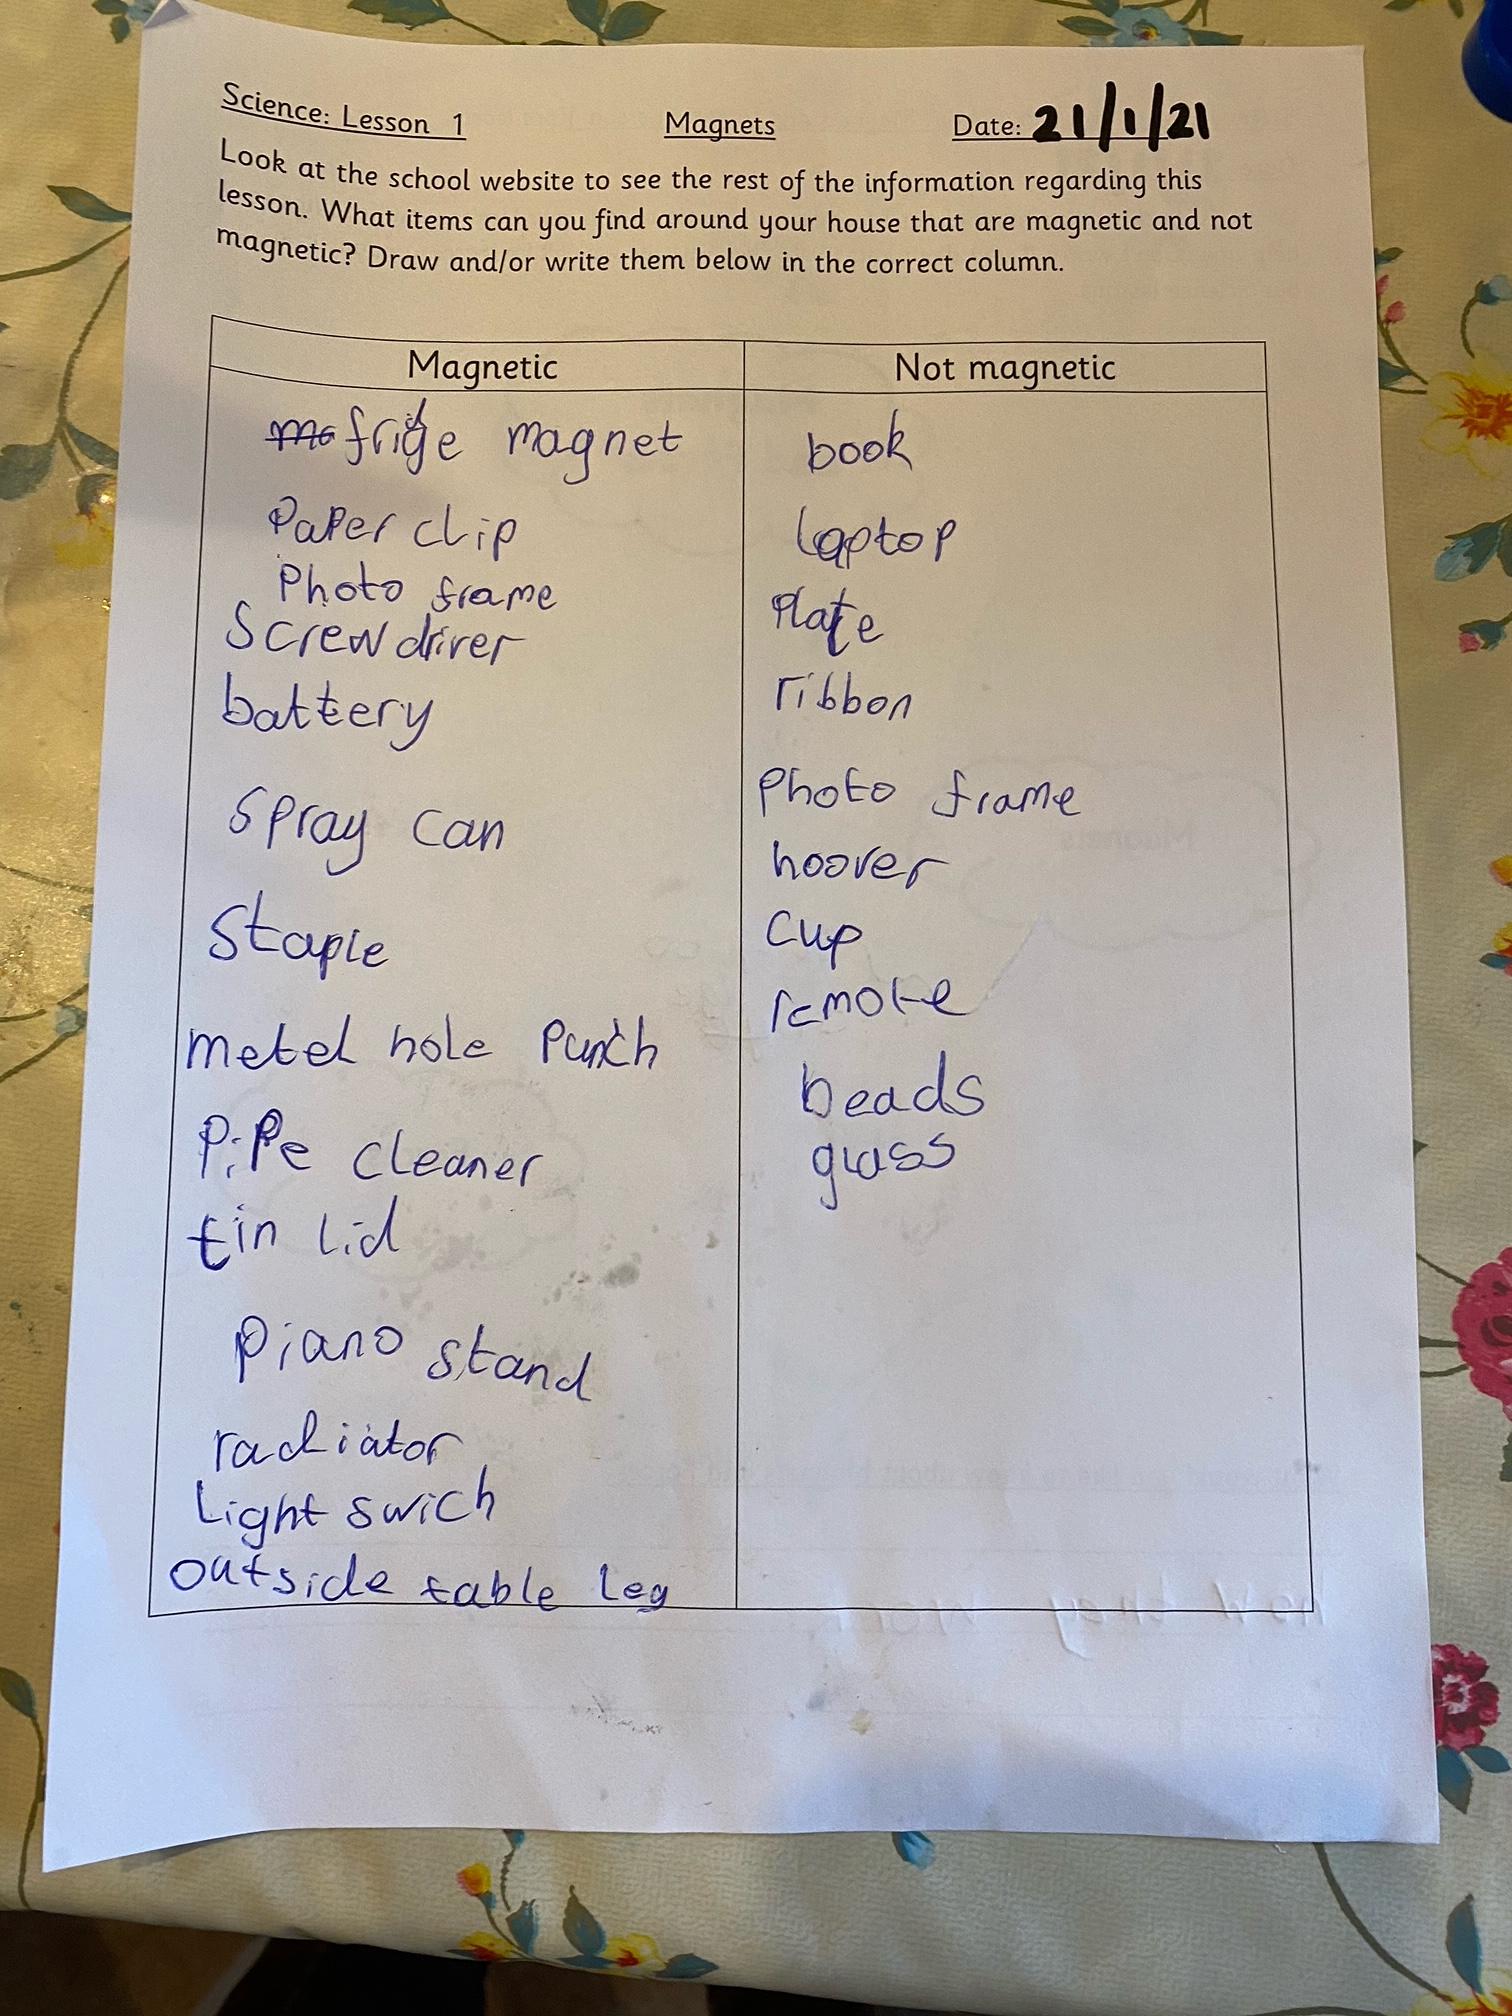 Science: Lesson 1 Magnets Date: 21/1/21
Look at the school website to see the rest of the information regarding this
lesson. What items can you find around your house that are magnetic and not
magnetic? Draw and/or write them below in the correct column.
Magnetic
fridge magnet
Paper clip
Photo frame
Screwdriver
battery
Spray can
Staple
metel hole Punch
PiPe cleaner
tin lid
piano stand
radiator
Light swich
outside table leg
Not magnetic
book
laptop
Plate
ribbon
Photo frame
hoover
cup
remote
beads
glass